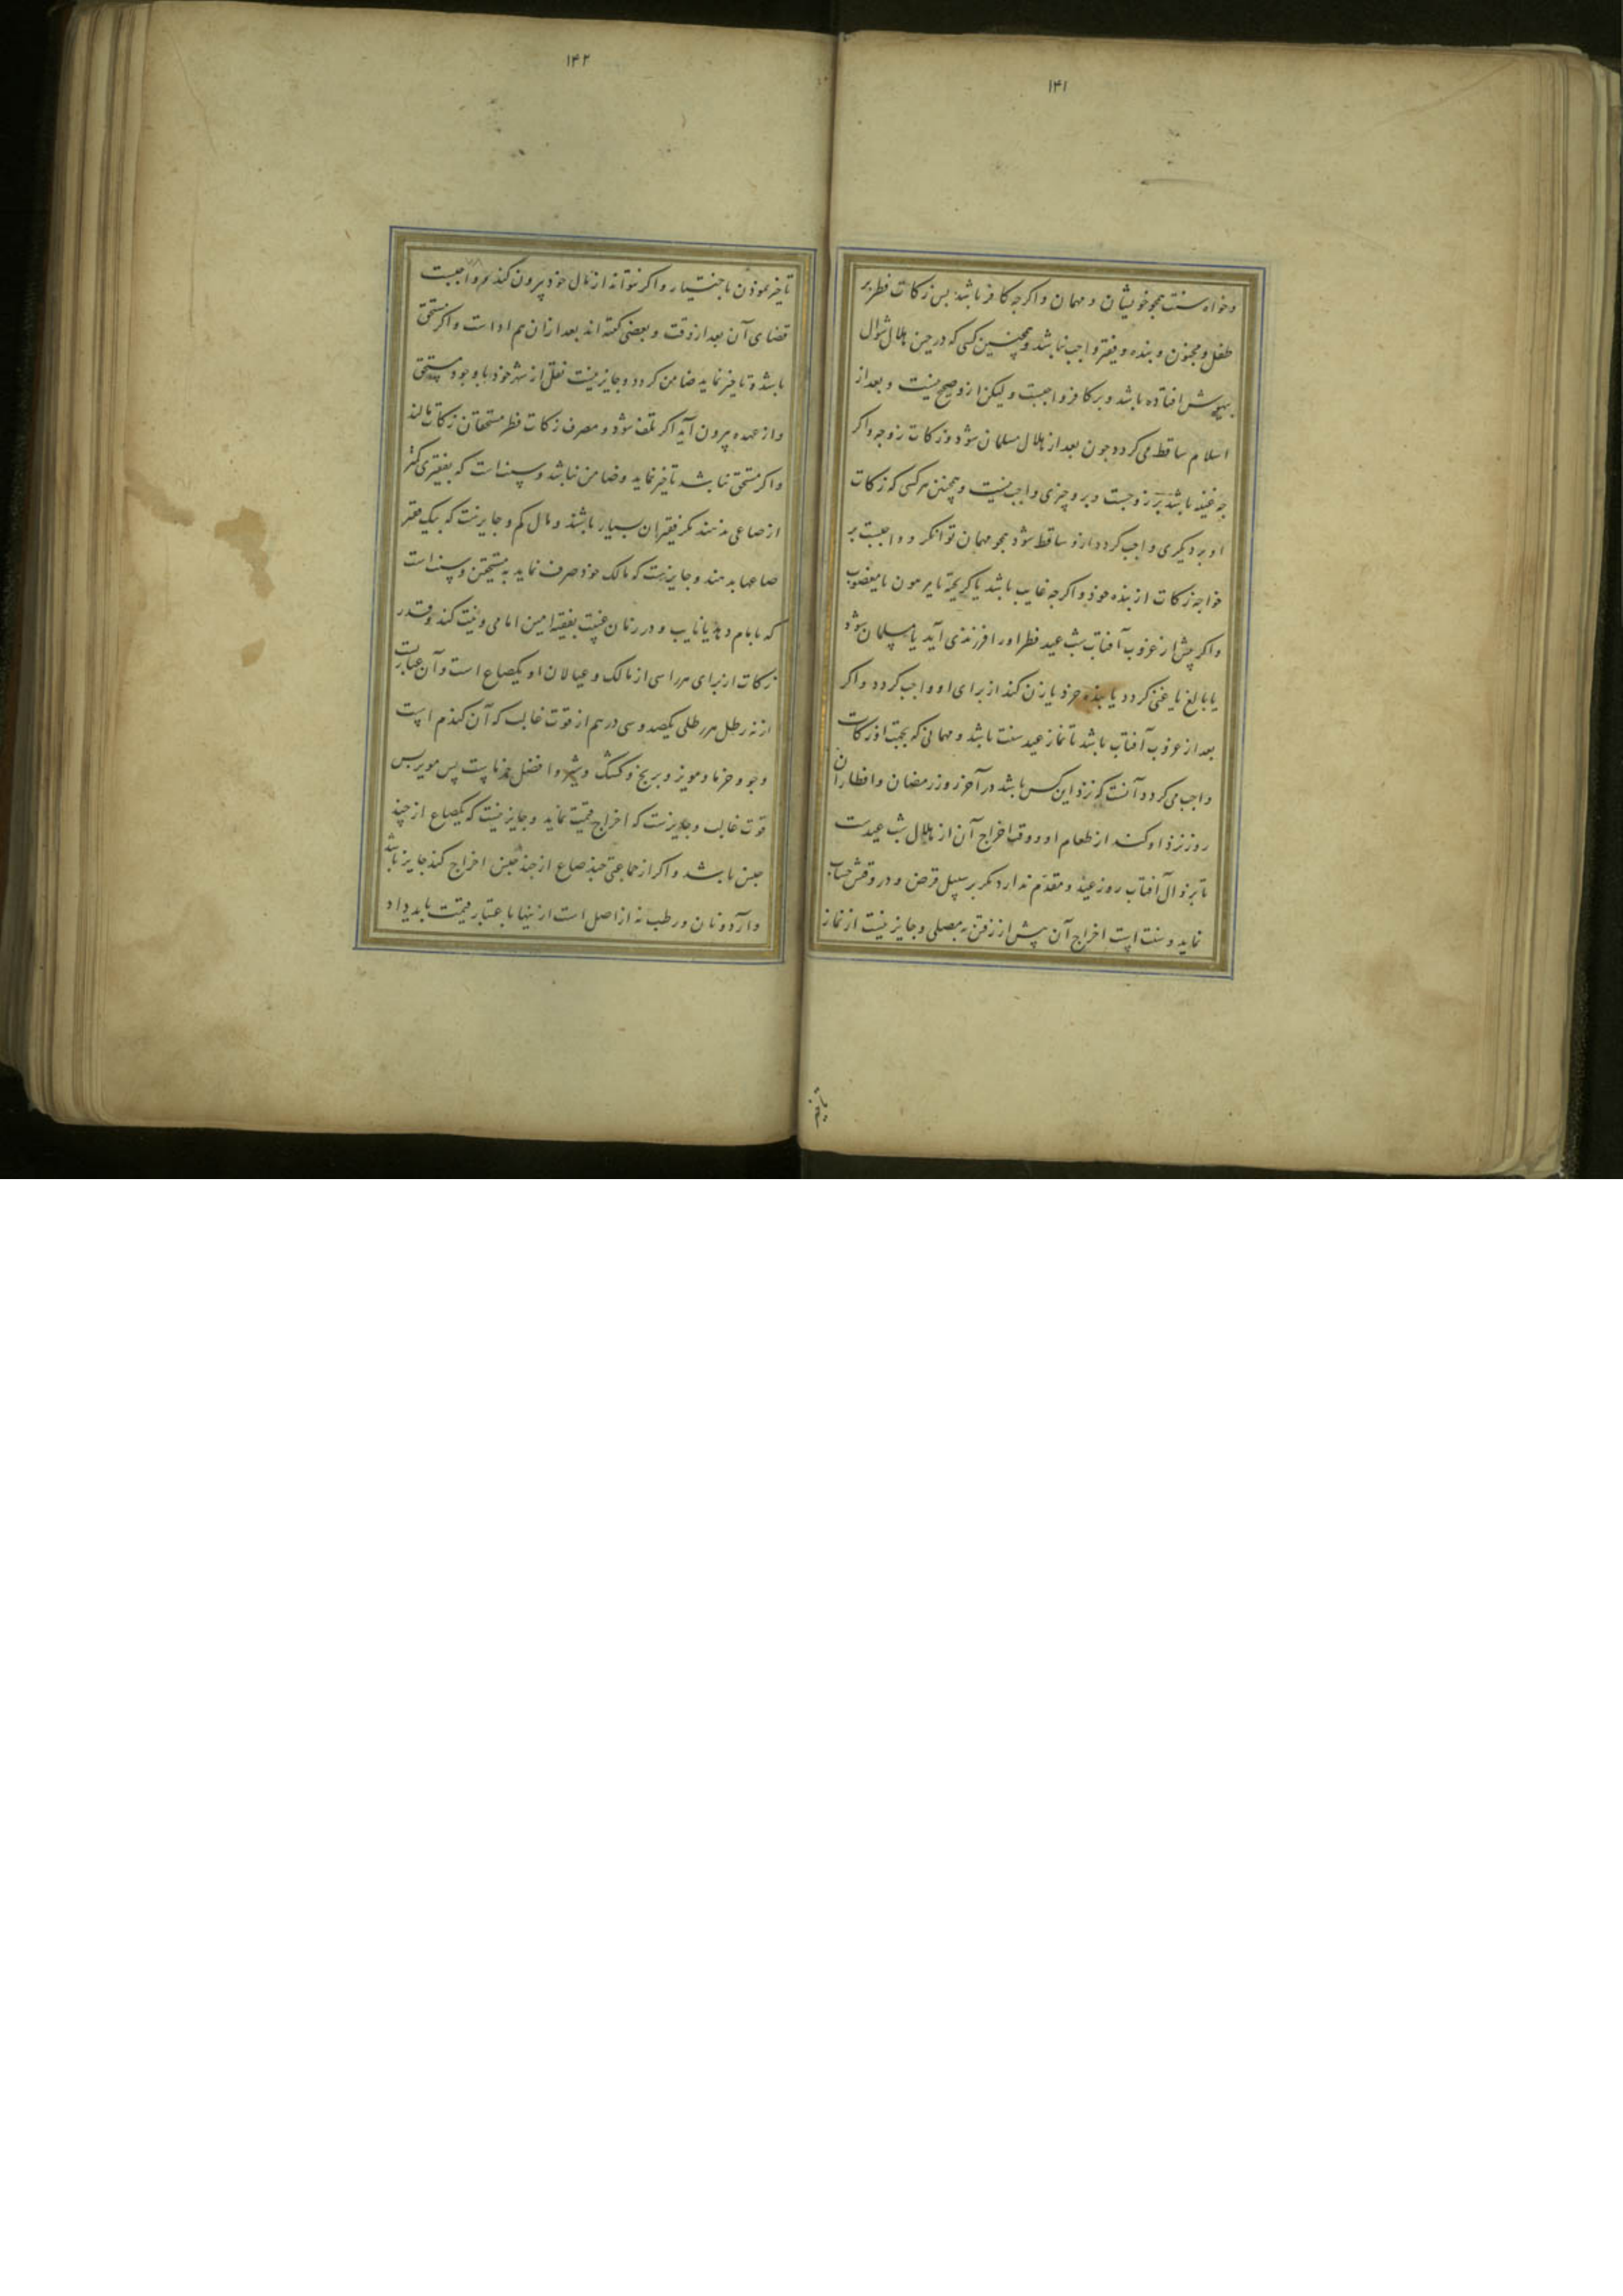 ۱۴۱
وخواه سنت همجو خویشان و مهمان و اکرجه کافر باشد بس زکات فطر بر
طفل و مجنون و بنده و فقیر واجب نباشد و همچنین کسی که در حین هلال شوال
بیهوش افتاده باشد و بر کافر واجبست ولیکن ازو صحیح نیست و بعد از
اسلام ساقط می کردد جون بعد از هلال مسلمان شود و زکات زوجه و اکر
جه غنیه باشد بر زوجست و برو چیزی واجب نیست و همچنین هر کسی که زکات
او بر دیکری واجب کردد ازو ساقط شود همجو مهمان توانکر و واجبست بر
خواجه زکات از بنده خوذ و اکرجه غایب باشد یا کریخته یا مرهون یا مغصوب
و اکر پیش از غروب آفتاب شب عید فطر اورا فرزندی آید یا مسلمان شود
یا بالغ یا غنی کردد یا بنده خرد یا زن کند از برای او واجب کردد و اکر
بعد از غروب آفتاب باشد تا نماز عید سنت باشد و مهمانی که بجهت او زکات
واجب می کردد آنست که نزذ این کس باشد در آخر روز رمضان و افطار آن
روز نزذ او کند از طعام او و وقت اخراج آن از هلال شب عیدست
تا بزوال آفتاب روز عید و مقدم ندارد مکر بر سبیل قرض و در وقتش حساب
نماید و سنت است اخراج آن پیش از رفتن به مصلی و جایز نیست از نماز
تاخیر
۱۴۲
تاخیر نموذن باختیار و اکر نتواند از مال خوذ بیرون کند و واجبست
قضای آن بعد از وقت و بعضی کفته اند بعد از ان هم اداست و اکر مستحق
باشد و تاخیر نماید ضامن کردد و جایز نیست نقل از شهر خوذ با وجود مستحق
و از عهده بیرون آید اکر تلف شود و مصرف زکات فطر مستحقان زکات مالند
و اکر مستحق نباشد تاخیر نماید و ضامن نباشد و سنت است که بفقیری کمتر
از صاعی ندهند مکر فقیران بسیار باشند و مال کم و جایزست که بیک فقیر
صاعها بدهند و جایزست که مالک خود صرف نماید به مستحقین و سنت است
که بامام دهد یا نایب و در زمان غیبت بفقیه امین امامی و نیت کند و قدر
زکات از برای هر راسی از مالک و عیالان او یکصاع است و آن عبارتست
از نه رطل هر رطلی یکصد و سی درهم از قوت غالب که آن کندم است
و جو و خرما و مویز و برنج و کشک و شیر و افضل خرماست پس مویز پس
قوت غالب و جایزست که اخراج قیمت نماید و جایز نیست که یکصاع از چند
جنس باشد و اکر از جماعتی چند صاع از چند جنس اخراج کند جایز باشد
و آرد و نان و رطب نه از اصل است از ینها باعتبار قیمت باید داد